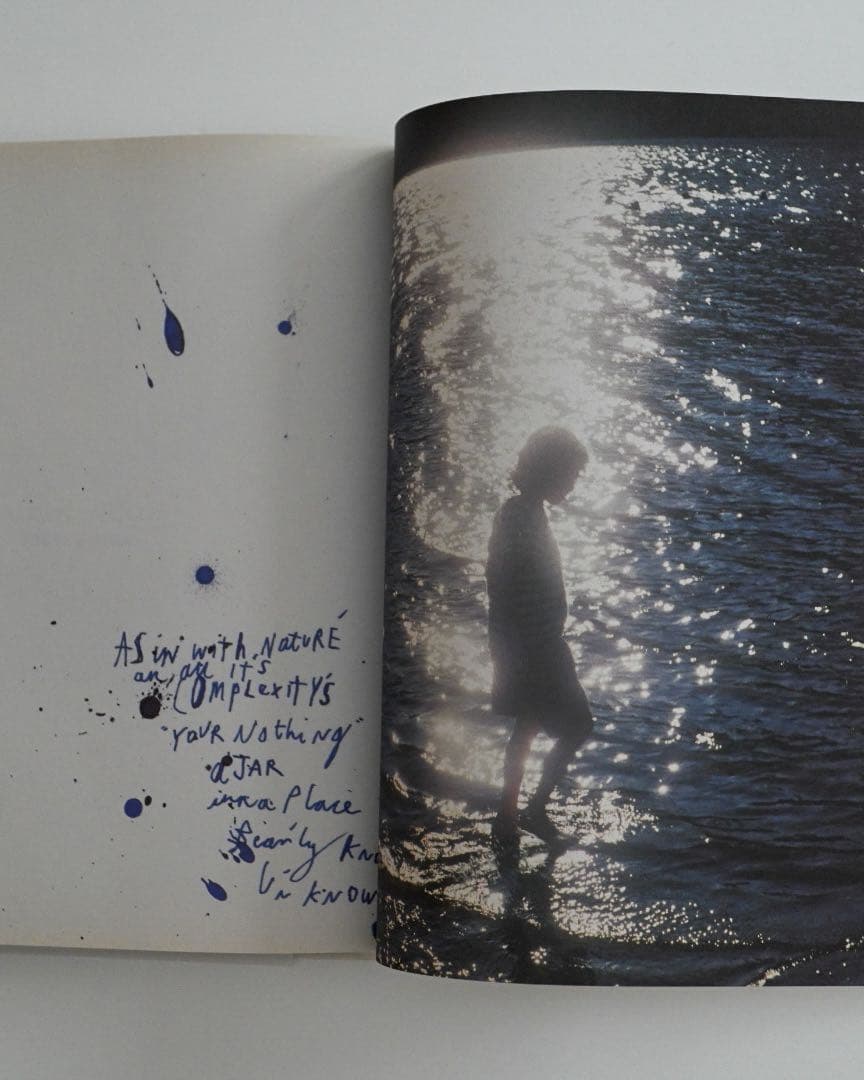 AS in with, NATURÉ
an, all it's
COMPLEXITY'S
"YOUR NOTHING"
aJAR
in a Place
KN
UNKNOW